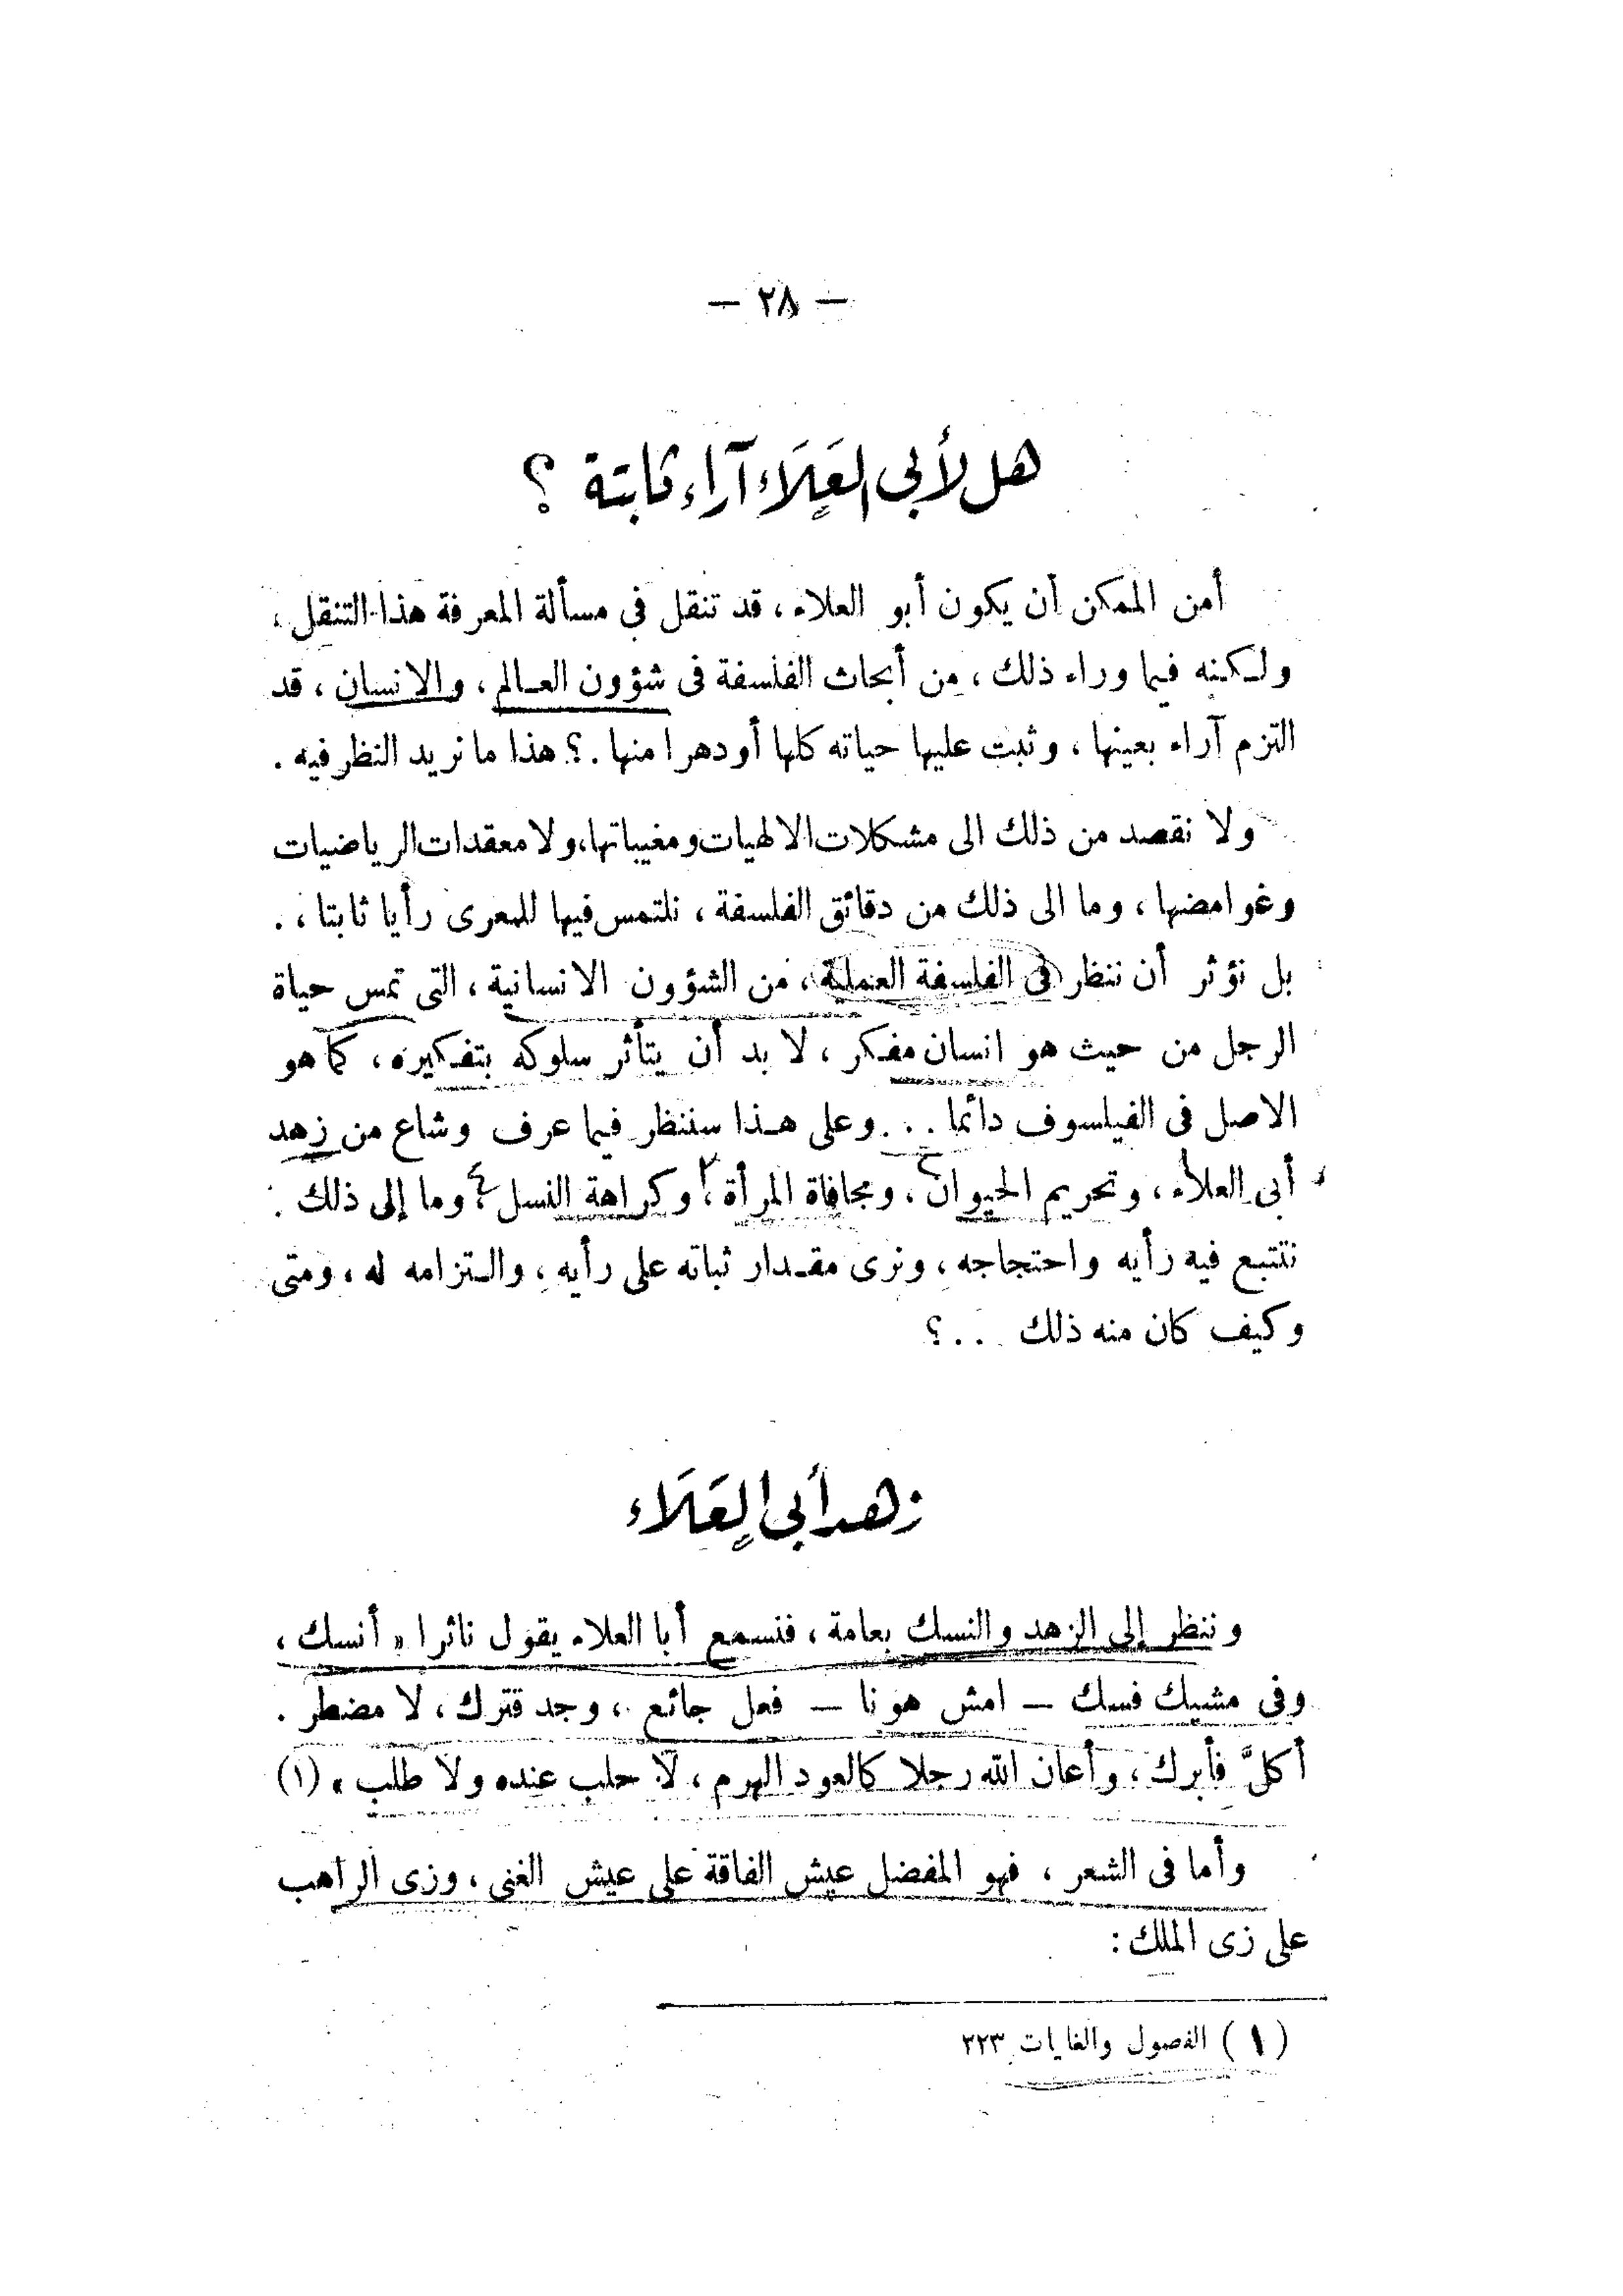 — ٢٨ —
هل لأبى العَلَاء آراء ثابتة ؟
أمن الممكن أن يكون أبو العلاء ، قد تنقل فى مسألة المعرفة هذا التنقل ،
ولكنه فيما وراء ذلك ، من أبحاث الفلسفة فى شؤون العالم ، والانسان ، قد
التزم آراء بعينها ، وثبت عليها حياته كلها أو دهرا منها . ؟ هذا ما نريد النظر فيه .
ولا نقصد من ذلك الى مشكلات الالهيات ومغيباتها ، ولا معقدات الرياضيات
وغوامضها ، وما الى ذلك من دقائق الفلسفة ، نلتمس فيها للمعرى رأيا ثابتا ، .
بل نؤثر أن ننظر فى الفلسفة العملية ، من الشؤون الانسانية ، التى تمس حياة
الرجل من حيث هو انسان مفكر ، لا بد أن يتأثر سلوكه بتفكيره ، كما هو
الاصل فى الفيلسوف دائما . . . وعلى هذا سننظر فيما عرف وشاع من زهد
أبى العلاء ، وتحريم الحيوان ، ومجافاة المرأة ، وكراهة النسل ، وما إلى ذلك :
نتتبع فيه رأيه واحتجاجه ، ونرى مقدار ثباته على رأيه ، والتزامه له ، ومتى
وكيف كان منه ذلك . . . ؟
زهد أبى العَلَاء
وننظر إلى الزهد والنسك بعامة ، فنسمع أبا العلاء يقول ناثرا « أنسك ،
وفى مشيك فسك — امش هونا — فعل جائع ، وجد قترك ، لا مضطر .
أكلَّ فأبرك ، وأعان الله رجلا كالعود الهرم ، لا حلب عنده ولا طلب » (١)
وأما فى الشعر ، فهو المفضل عيش الفاقة على عيش الغنى ، وزى الراهب
على زى الملك :
( ١ ) الفصول والغايات ٣٢٣